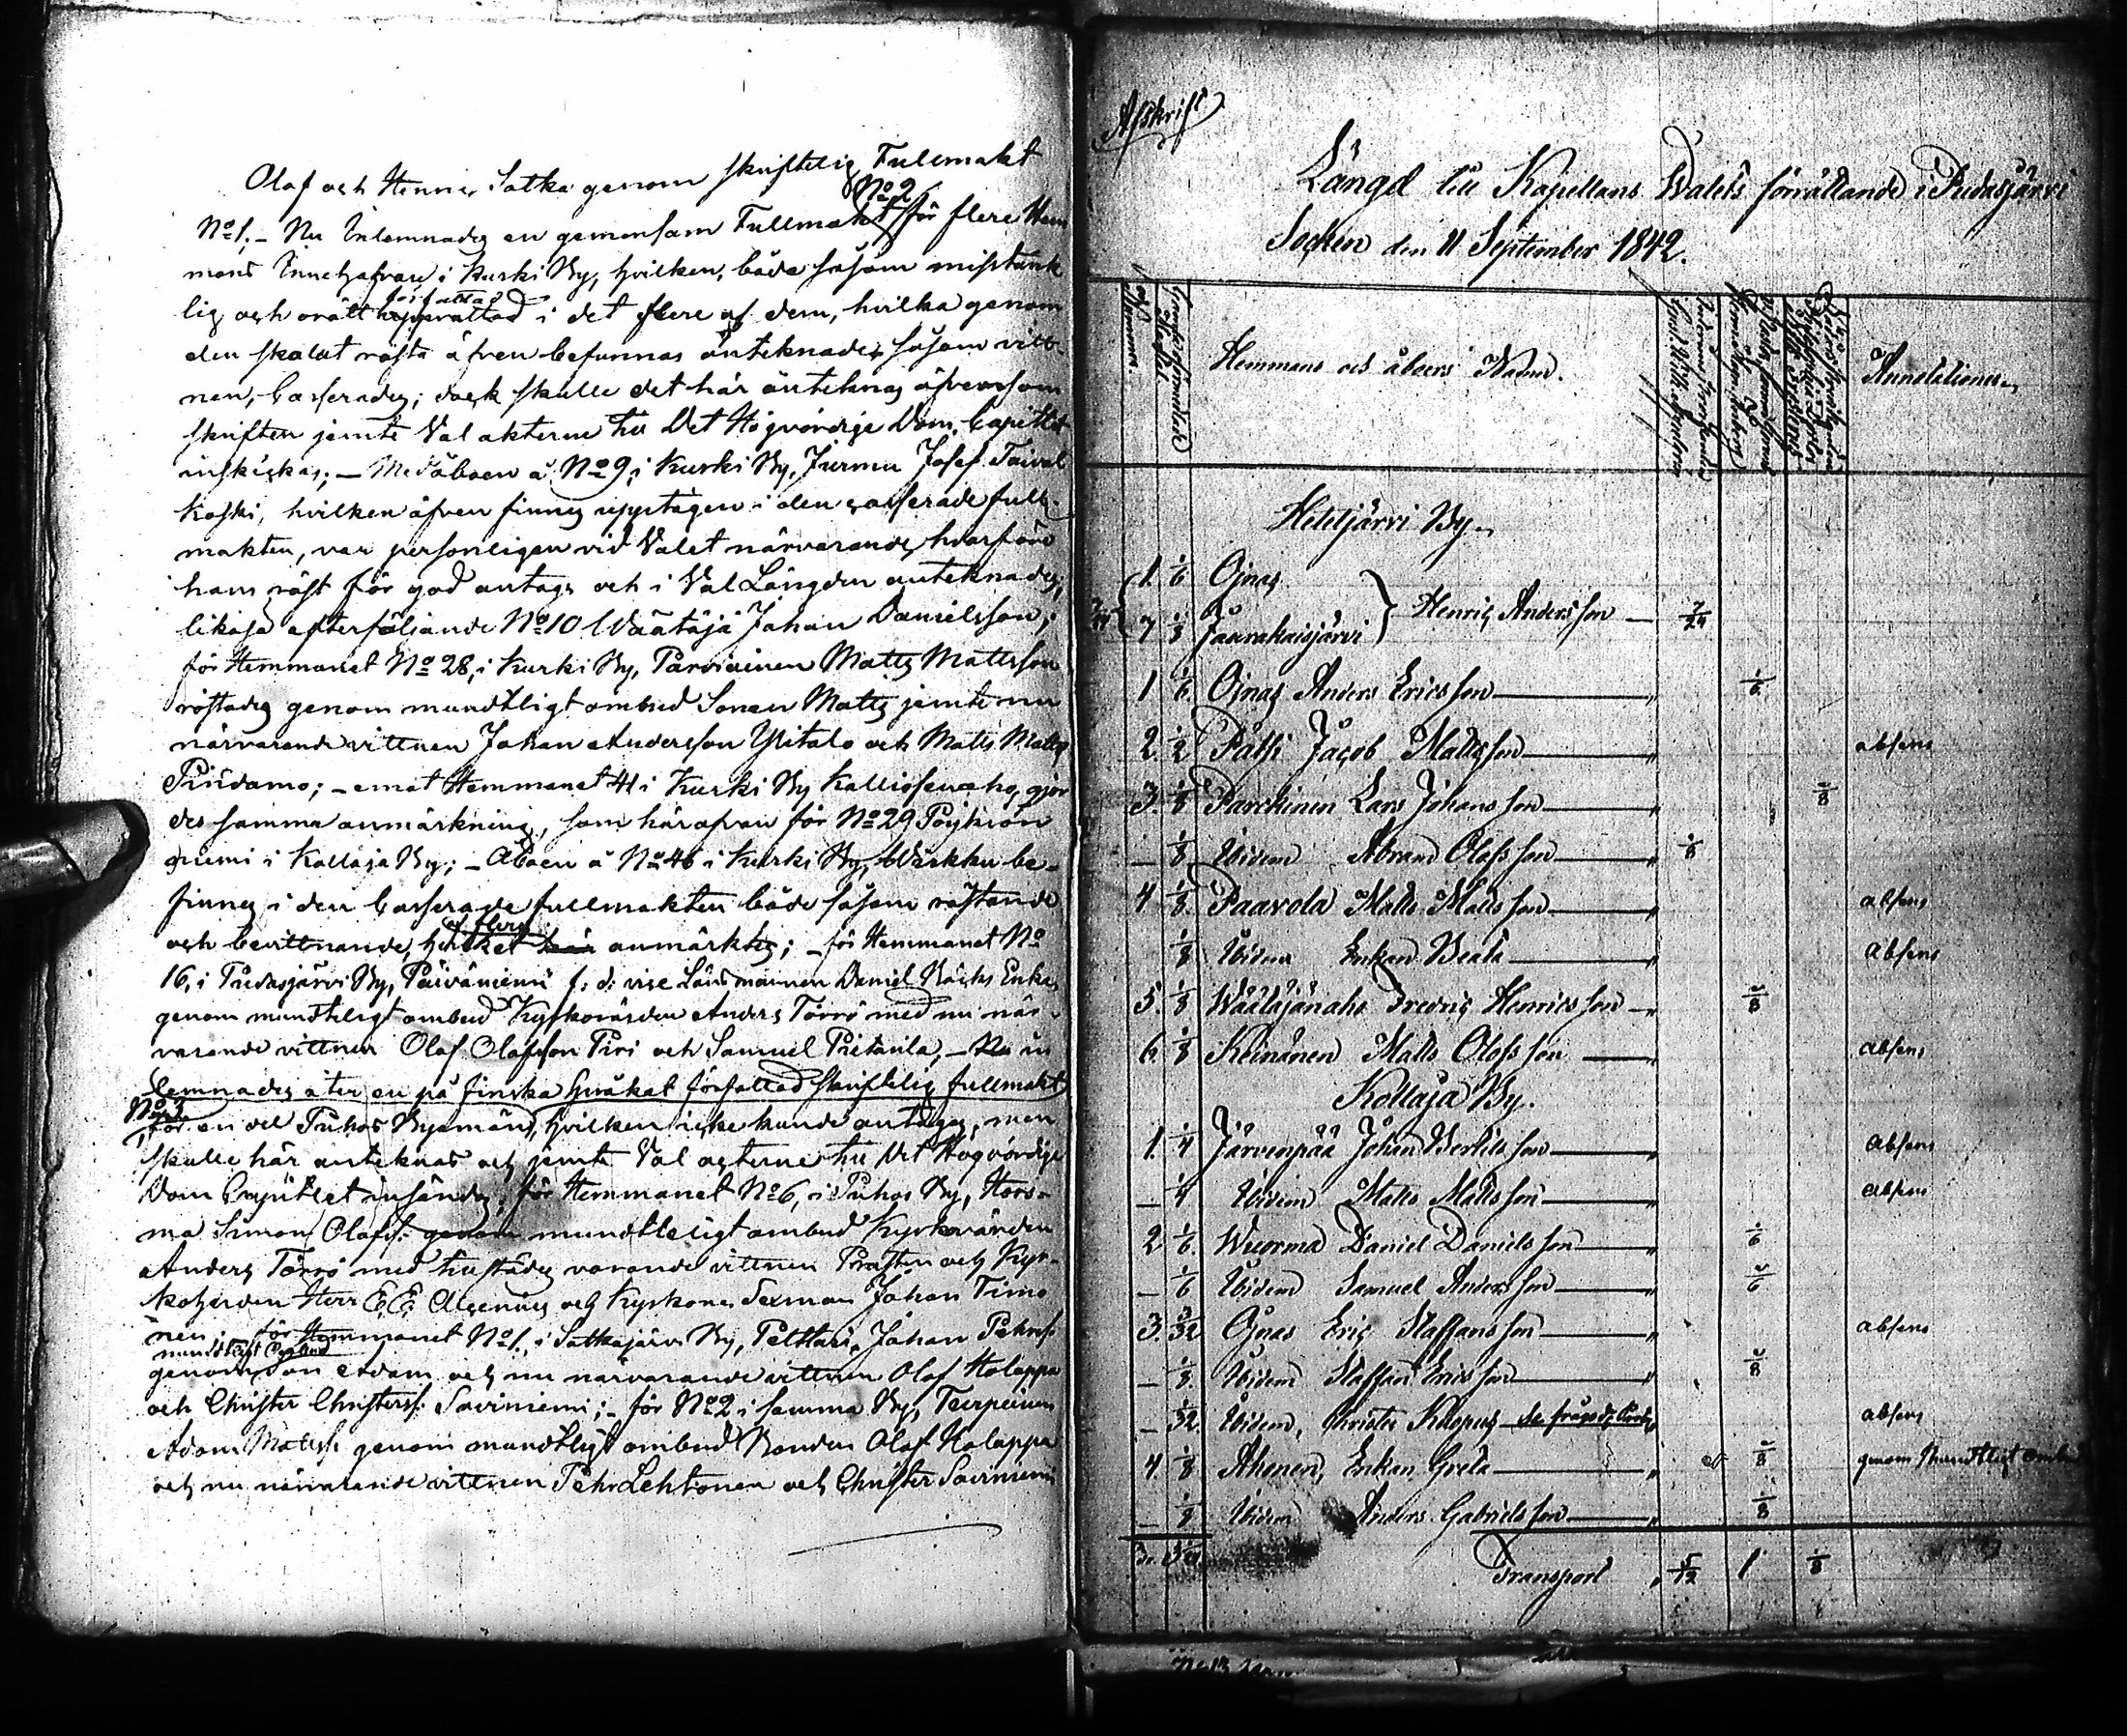 Olaf och Henner Satka genom skriftelig Fullmakt
No 1. - Nu Inlemnades en gemensam Fullmakt No 2 för flere Hem
mans Innehafvare i Kurki By, hvilken, både såsom misstänk
lig och orätt författad i det flere af dem, hvilka genom
den skolat rösta äfven befunnas antecknade såsom vitt-
nen, Casserades; dock skulle det här antecknas äfvensom
skriften jemte Val akterne till Det Högvördige Dom Capitlet
inskickas; - Med åboen å No 9, i Kurki By, Jurmu Josef Taival
koski, hvilken äfven finnes upptagen i den casserade full-
makten, var personligen vid Valet närvarande, hvarföre
hans röst för god antags och i Val Längden antecknades,
likaså efterföljande No 10 Väätäjä Johan Danielsson;
för Hemmanet No 28, i Kurki By, Parviainen Matts Mattsson
röstades genom mundtligt ombud Sonen Matts jemte nu
närvarande vittnen Johan Andersson Ylitalo och Matts Matts
Pindamo; - emot Hemmanet 41 i Kurki By Kalliosenaho, gjor
des samma anmärkning, som här ofvan för No 29 Pöykiön
niemi i Kollaja By; - Åboen å No 46 i Kurki By, Wirkku be-
finnes i den Casserade fullmakten både såsom röstande
och bevittnande, hvilket anmärktes; - för Hemmanet No
16, i Pudasjärvi By, Päiväniemi f: d: vice Länsmannen Daniel Bäcks Enka,
genom mundteligt ombud Kyrkovärden Anders Törrö med nu när-
varande vittnen Olof Olofsson Piri och Samuel Pietarila, - Nu in
lemnades åter en på finska språket författad skriftelig fullmakt
No 3 för en del Puhos Byamän, hvilken icke kunde antagas, men
skulle här antecknas och jemte Val acterne till Det Högvördige
Dom Capitlet insändas; för Hemmanet No 6, i Puhos By, Hors-
ma Simon Olofss: genom mundtteligt ombud Kyrkovärden
Anders Törrö med tillstädes varande vittnen Prosten och Kyr-
koherden Herr E: E: Algenius och Kyrkones Sexman Johan Timo
nen; för Hemmanet No 1. i Satkajärvi By, Pelttari, Johan Pehrss
mundtligt Ombud
genom Son Adam och nu närvarande vittnen Olof Holappa
och Christer Christerss: Saviniemi; - för No 2 i samma By, Teirpeinen
Adam Mattss: genom mundtligt ombud Bonden Olof Holappa
och nu närvarande vittnen Pehr Lehtonen och Christer Saviniemi
Afskrift
Längd till Kapellans Walets förrättande i Pudasjärvi
Socken den 11 September 1842.
Hemmans och åboers Namn. Annotationer
Hetejärvi By.
1. 1/6 Ojnas
7/24 7 1/8 Jaurakaisjärvi } Henric Andersson — 7/24
1 1/6. Ojnas Anders Ericsson — " 1/6
2. 1/2 Pätsi Jacob Mattsson — " absens
3. 1/8 Parckinen Lars Johansson — " 1/8
— 1/8 Ibidem Abram Olofsson — " 1/8
4 1/8. Paavola Matts Mattsson — " absens
1/8 Ibidem Enkan Beata — " absens
5. 1/8 Wäätäjänaho Fredric Henricsson — " 1/8
6. 1/8 Keinänen Matts Olofsson — absens
Kollaja By.
1. 1/4 Järvenpää Johan Bertilsson — " absens
— 1/4 Ibidem Matts Mattsson — " absens
2 1/6. Wuorma Daniel Danielsson — " 1/6
— 1/6 Ibidem Samuel Andersson — " 1/6
3. 3/32 Ojnas Eric Staffansson — " absens
— 1/8. Ibidem Staffan Ericsson — " 1/8
— 1/32. Ibidem, Christer Kaspus — absens
4. 1/8 Ahonen, Enkan Greta — " 1/8 genom Mundtligt omb
— 1/8 Ibidem Anders Gabrielsson — " 1/8
Transport " 5/12 1 1/8